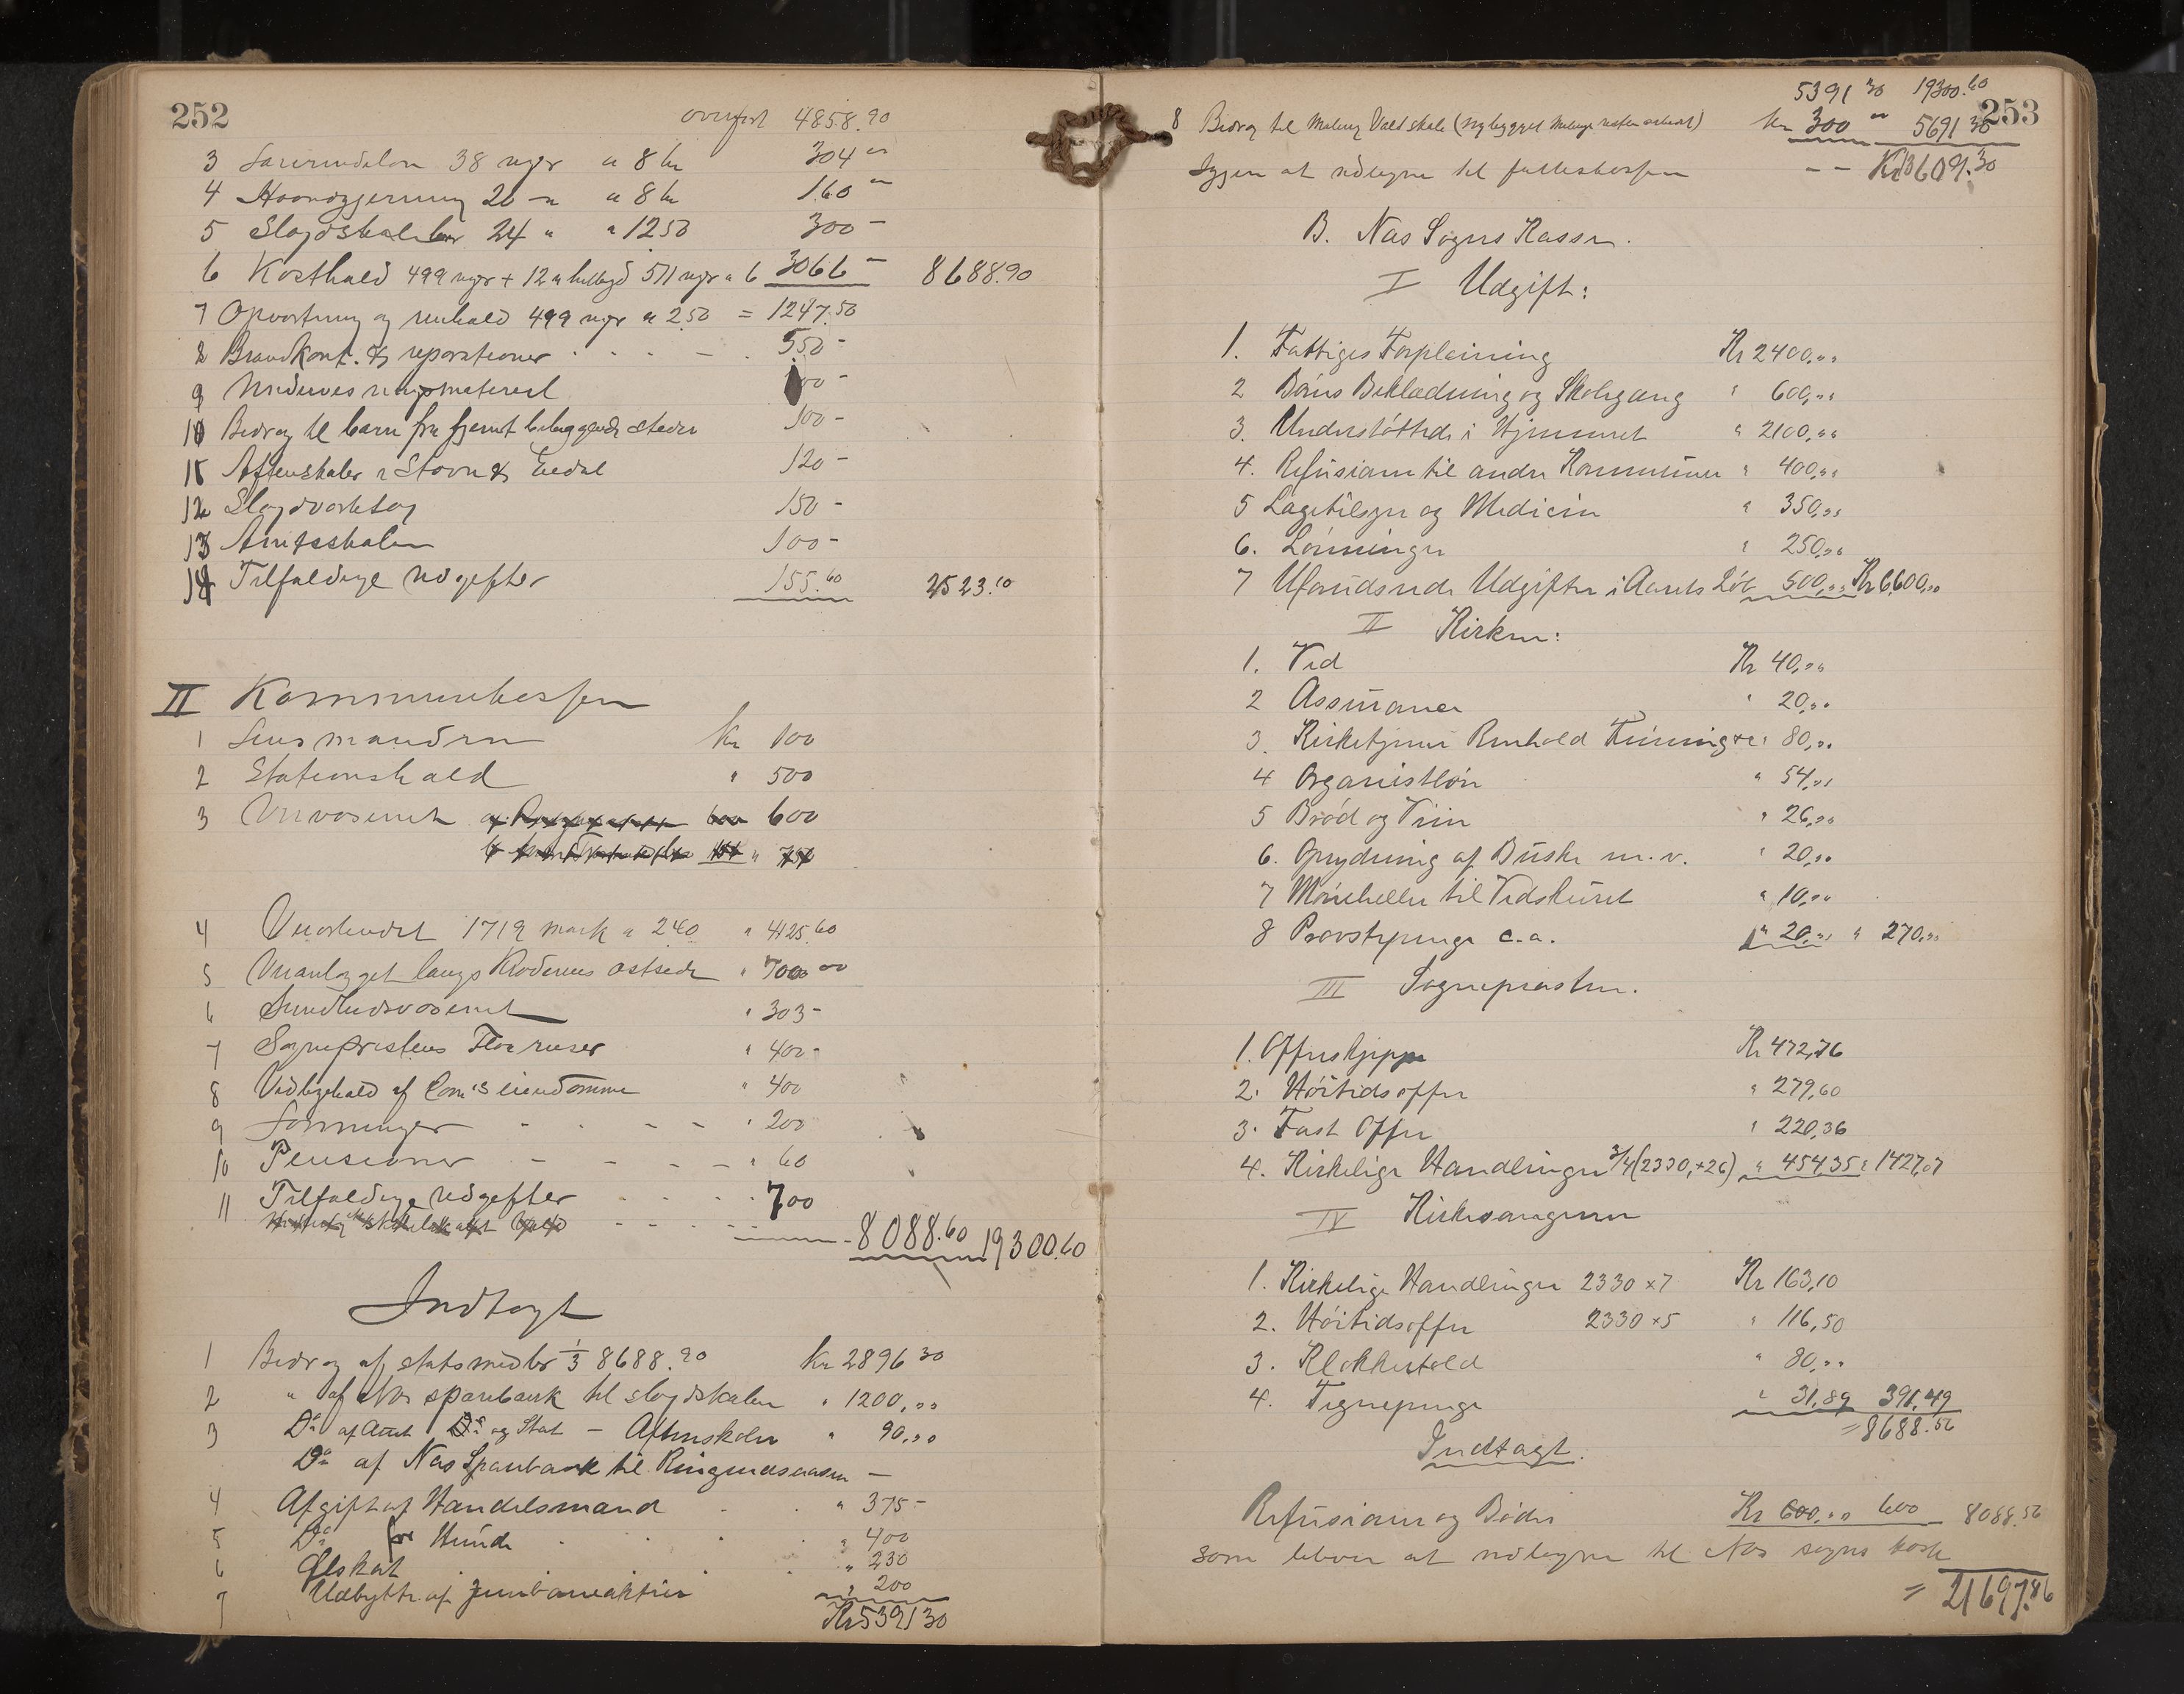 252
overført 4858.90
3 38 uger a 8 kr 304 "
4 Haandgjerning 20 - " a 8 kr 160 "
5 Sløjdskolelær 24 " " 1250 300 -
6 Kosthold 499 uger + 12 a 511 uger a 6 3066 - 8688.90
7 Opvartning og renhold 499 uger a 2.50 = 1247.50
8 Brandkont. & reparationer 550 -
9 Undervisningsmateriel 100 -
10 Bidrag til barn fra fjernt beliggende steder 100 -
11 Aftenskoler i Stavn & Eidal 120 -
12 Sløjdværktøj 150 -
13 Amtsskolen 100 -
14 Tilfældige udgifter 155.60 2523.10
II Kommunekassen
1 Lensmanden kr 100
2 Stationshold " 500
3 Veivæsenet 600
4 1719 mark a 240 " 4125.60
5 Veianlægget langs Krøderens østside " 700 00
6 Sundhedsvæsenet " 303 -
7 Sognepræstens " 400 -
8 Vedligehold af Com's eiendomme " 400
9 Lønninger " 200
10 Pensioner " 60
11 Tilfældige udgifter 700
8088.60 19300.60
Indtægt
1 Bidrag af statsmidler 1/3 8688.90 kr 2896 30
2 " af Næs sparebank til sløjdskolen " 1200,"
3 Do af Amt Do og Stat - Aftenskoler " 90,"
Do af Næs Sparebank til Ringnesaasen -
4 Afgift af Handelsmænd " 375 -
5 Do for Hunde " 400
6 Ølskat " 230
7 Udbytte af jernbaneaktier " 200
Kr 5391 30
253
5391 30 19300.60
8 Bidrag til Maling Vold skole kr 300 " 5691 30
Igjen at udligne til felleskassen -- Kr 13609.30
B. Næs Sogns Kasse.
I Udgift:
1. Fattiges Forpleining Kr 2400,"
2 Børns Beklædning og Skolegang " 600,"
3. Understøttede i Hjemmet " 2100,"
4. Refusioner til andre Kommuner " 400,"
5 Lægetilsyn og Medicin " 350,"
6. Lønninger " 250,"
7 Uforudseede Udgifter i Aarets Løb 500," Kr 6600,"
II Kirken:
1. Ved Kr 40,"
2 Assurance " 20,"
3. Kirketjener Renhold Fyrning " 80,"
4 Organistløn " 54,"
5 Brød og Vin " 26,"
6. Oprydning af Buske m.v. " 20,"
7 Møneheller til Vedskuret " 10,"
8 Provstepenge c.a. " 20," " 270,"
III Sognepræsten.
1. Offerskjæppe Kr 472,76
2. Høitidsoffer " 279,60
3. Fast Offer " 220,36
4. Kirkelige Handlinger 3/4(2330,+26) " 454,35 " 1427,07
IV Kirkesangeren
1. Kirkelige Handlinger 2330 × 7 Kr 163,10
2. Høitidsoffer 2330 × 5 " 116,50
3. Klokkertold " 80,"
4. Tegnepenge " 31,89 391,49
= 8688.56
Indtægt.
Refusioner og Bøder Kr 600," 600 8088.56
som bliver at udligne til Næs sogns kasse
= 21697.86